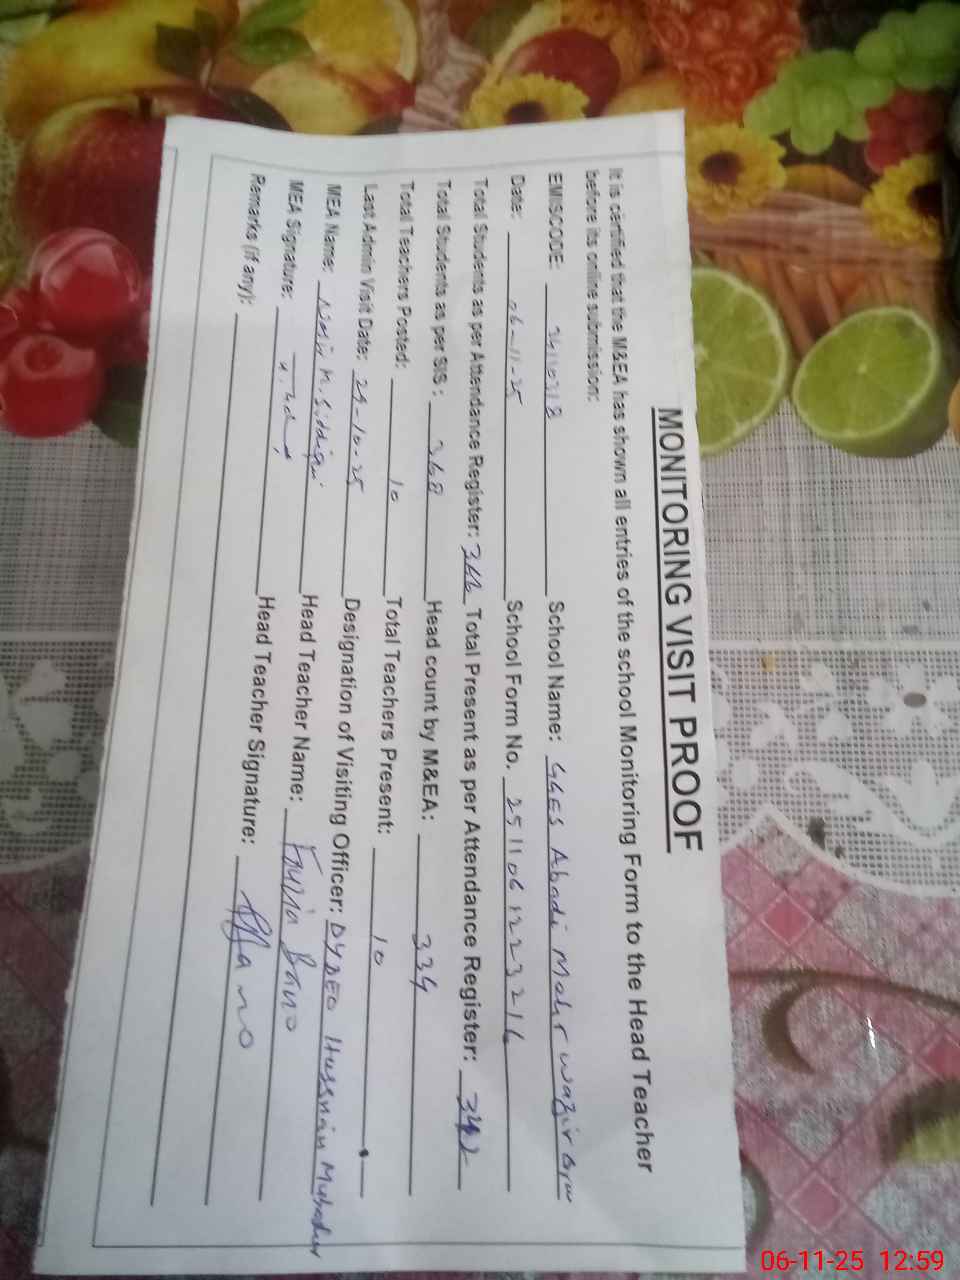 MONITORING VISIT PROOF
It is certified that the M&EA has shown all entries of the school Monitoring Form to the Head Teacher
before its online submission:
EMISCODE: School Name: GGES Abadi Mehr wazir
Date: 06-11-25 School Form No. 25110612232216
Total Students as per Attendance Register: Total Present as per Attendance Register: 342
Total Students as per SIS: 368 Head count by M&EA: 334
Total Teachers Posted: 10 Total Teachers Present: 10
Last Admin Visit Date: 29-10-25 Designation of Visiting Officer: DYDEO Hussnain
MEA Name: M. Siddiqui Head Teacher Name: Fouzia Bano
MEA Signature: Head Teacher Signature:
Remarks (if any):
06-11-25 12:59